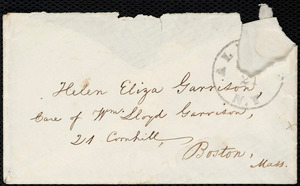 AL
N.Y.
Helen Eliza Garrison,
Care of Wm. Lloyd Garrison,
21 Cornhill,
Boston,
Mass.